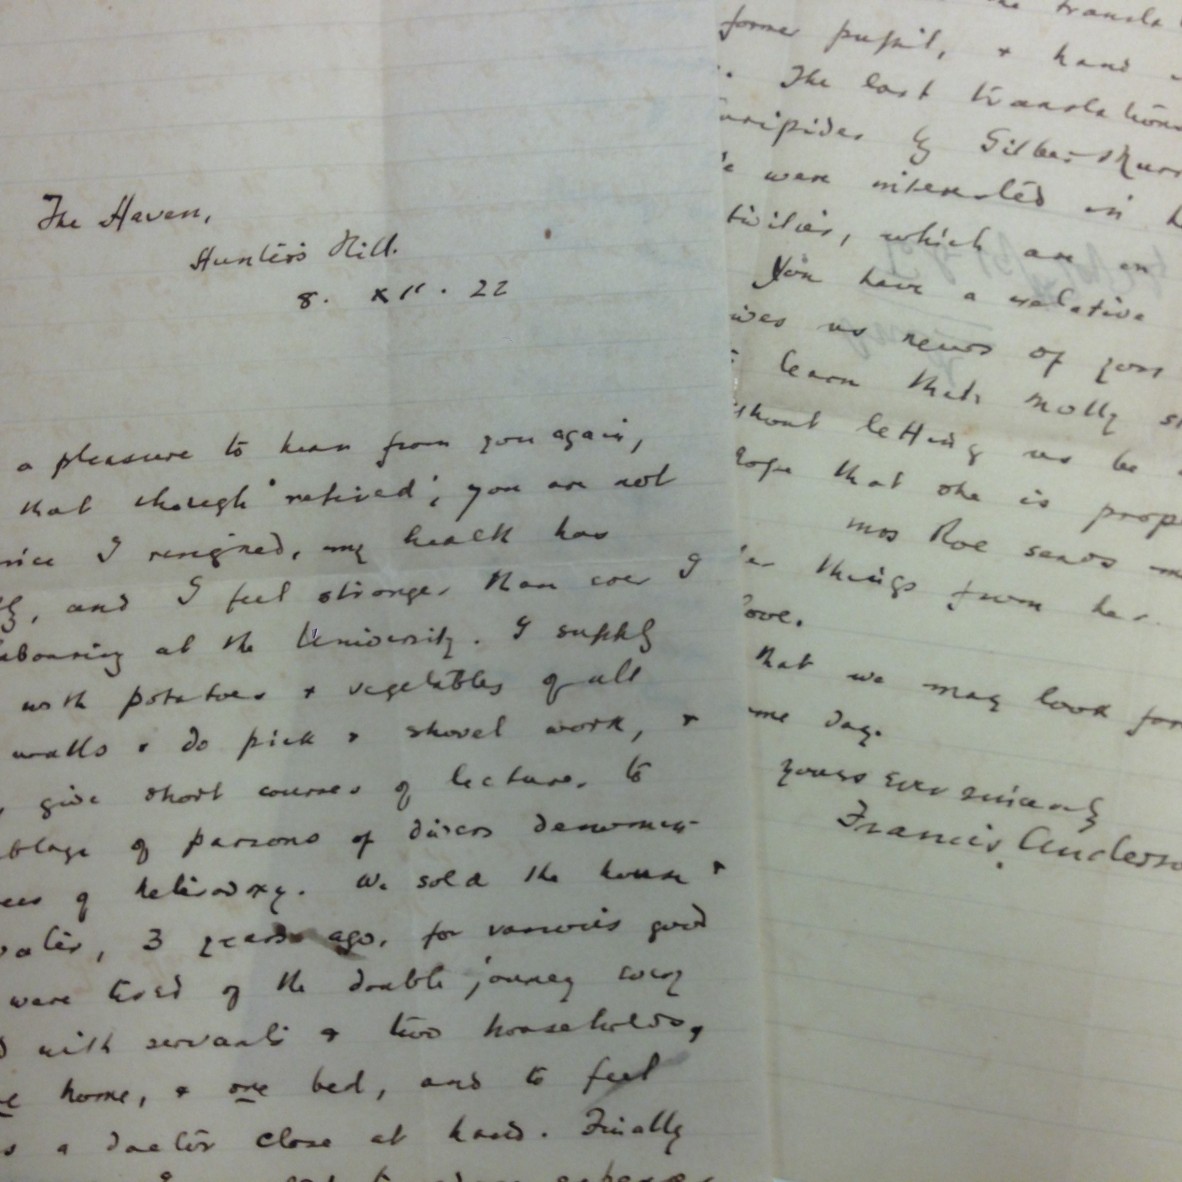 The Haven,
Hunter's Hill.
8. XII. 22
a pleasure to hear from you again,
that though 'retired', you are not
I resigned, my health has
and I feel stronger than ever I
labouring at the University. I supply
with potatoes + vegetables of all
walls + do pick + shovel work, +
give short courses of lectures to
of parsons of divers denomin-
of heterodoxy. We sold the house +
3 years ago, for various good
were tired of the double journey every
with servants + two households,
home, + one bed, and to feel
a doctor close at hand. Finally
former pupil, + hand
The last translation
Euripides by Gilbert Murr
were interested in
tivities, which are an
You have a relative
gives us news of your
learn that Molly
without letting us be
hope that she is prop
Mrs Roe sends
things from her.
love.
that we may look for
me day.
Yours ever sincerely
Francis Anderso